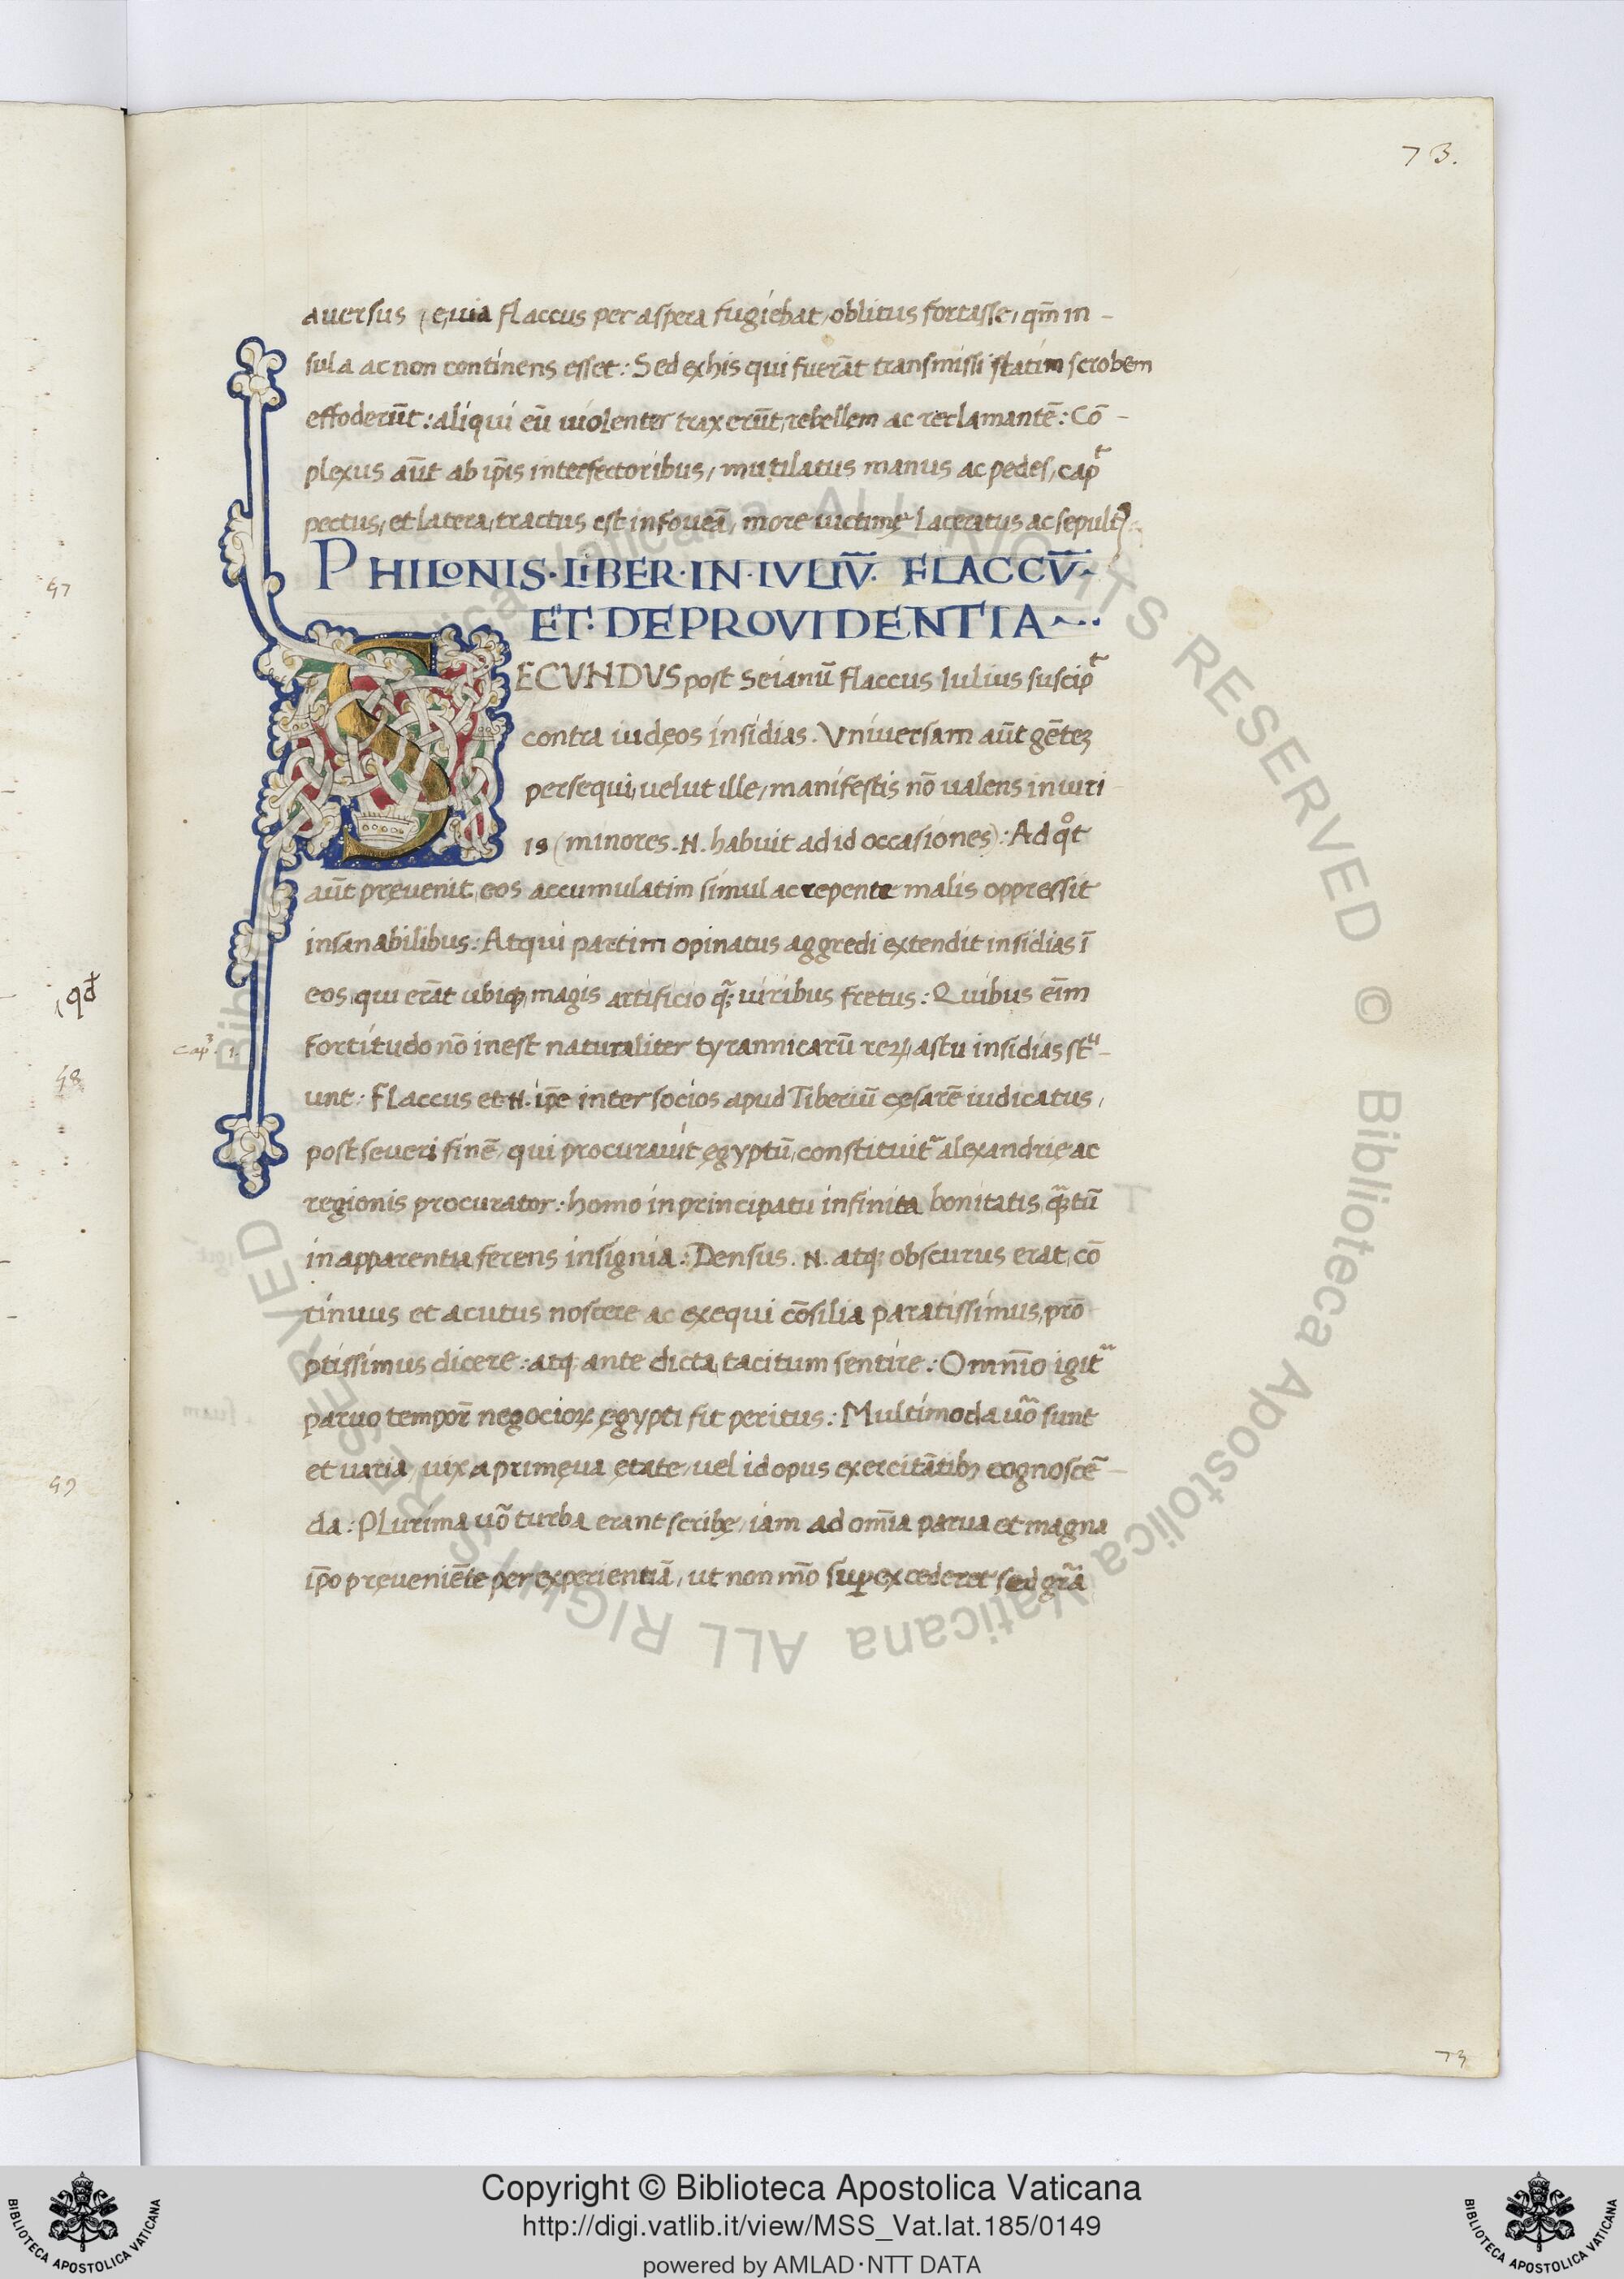 73.
auersus ( e uia flaccus per aspera fugiebat, oblitus fortasse, qm̄ in –
sula ac non continens esset : Sed ex his qui fuerāt transmissi statim scrobem
effoderūt : aliqui eū uiolenter traxerūt, rebellem ac reclamantē : Cō –
plexus aūt ab ip̄is interfectoribus, mutilatus manus ac pedes, cap̄t
pectus, et latera, tractus est in foueā, more uictimę laceratus ac sepultꝰ
PHILONIS · LIBER · IN · IVLIV̄ · FLACCV̄ ·
ET · DE PROVIDENTIA
SECVNDVS post Seianū flaccus Iulius suscip̄t
contra iudęos insidias . Vniuersam aūt gēteꝫ
persequi, uelut ille, manifestis nō ualens iniuri
is ( minores . N . habuit ad id occasiones ) : Ad qͦt
aūt pręuenit, eos accumulatim simul ac repente malis oppressit
insanabilibus : Atqui partim opinatus aggredi extendit insidias ī
eos, qui erāt ubiqꝫ magis artificio q̄ꝫ uiribus fretus : Quibus eīm
Cap. 1.
fortitudo nō inest naturaliter tyrannicarū reꝝ, astu insidias stͧ –
unt : Flaccus et . N . ip̄e inter socios apud Tiberiū cęsarē iudicatus,
post seueri finē, qui procurauit ęgyptū, constituit᷑ alexandrię ac
regionis procurator : homo in principatu infinita bonitatis, q̄ꝫtū
in apparentia, ferens insignia : Densus . N . atqꝫ obscurus erat, cō
tinuus et acutus noscere ac exequi cōsilia paratissimus, prō
ptissimus dicere : atqꝫ ante dicta, tacitum sentire : Omnīo igit᷑
paruo tempor̄ negocioꝝ ęgypti fit peritus : Multimoda uō sunt
et uaria, uix a primęua ętate, uel id opus exercitātibꝫ cognoscē –
da : Plurima uō turba erant scribę, iam ad om̄ia parua et magna
ip̄o pręueniēte per experientiā, ut non mō suꝑexcederet sed gr̄a
57
qđ
58
59
73
Biblioteca Apostolica Vaticana ALL RIGHTS RESERVED © Biblioteca Apostolica Vaticana ALL RIGHTS RESERVED
Copyright © Biblioteca Apostolica Vaticana
http://digi.vatlib.it/view/MSS_Vat.lat.185/0149
powered by AMLAD·NTT DATA
BIBLIOTECA APOSTOLICA VATICANA
BIBLIOTECA APOSTOLICA VATICANA